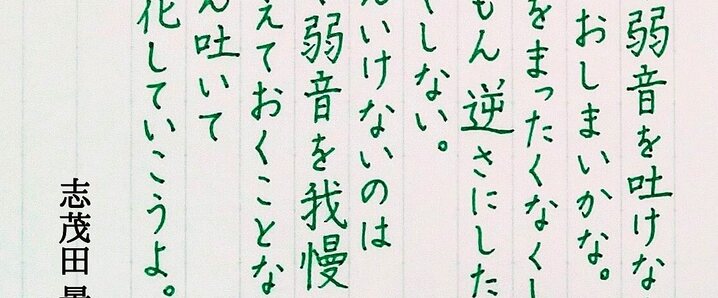 弱音を吐けな
おしまいかな。
をまったくなくし
もん逆さにした
しない。
いけないのは
弱音を我慢
えておくことな
ん吐いて
化していこうよ。
志茂田